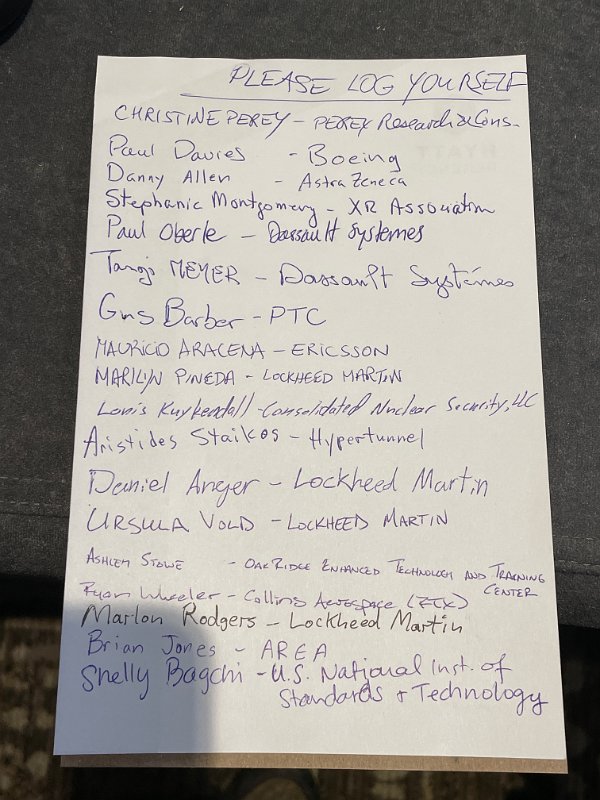 PLEASE LOG YOURSELF
CHRISTINE PEREY - PEREY Research & Cons.
Paul Davies - Boeing
Danny Allen - AstraZeneca
Stephanie Montgomery - XR Association
Paul Oberle - Dassault Systemes
MEYER - Dassault Systèmes
Gus Barber - PTC
MAURICIO ARACENA - ERICSSON
MARILYN PINEDA - LOCKHEED MARTIN
Louis Kuykendall - Consolidated Nuclear Security, LLC
Aristides Staikos - Hypertunnel
Daniel Anger - Lockheed Martin
URSULA VOLD - LOCKHEED MARTIN
ASHLEM STOWE - OAK RIDGE ENHANCED TECHNOLOGY AND TRAINING
CENTER
Ryan Wheeler - Collins Aerospace (RTX)
Marlon Rodgers - Lockheed Martin
Brian Jones - AREA
Shelly Bagchi - U.S. National Inst. of
Standards & Technology